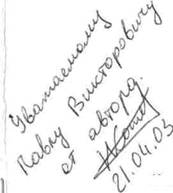 Уважаемому
Павлу Викторовичу
от автора.
21.04.03